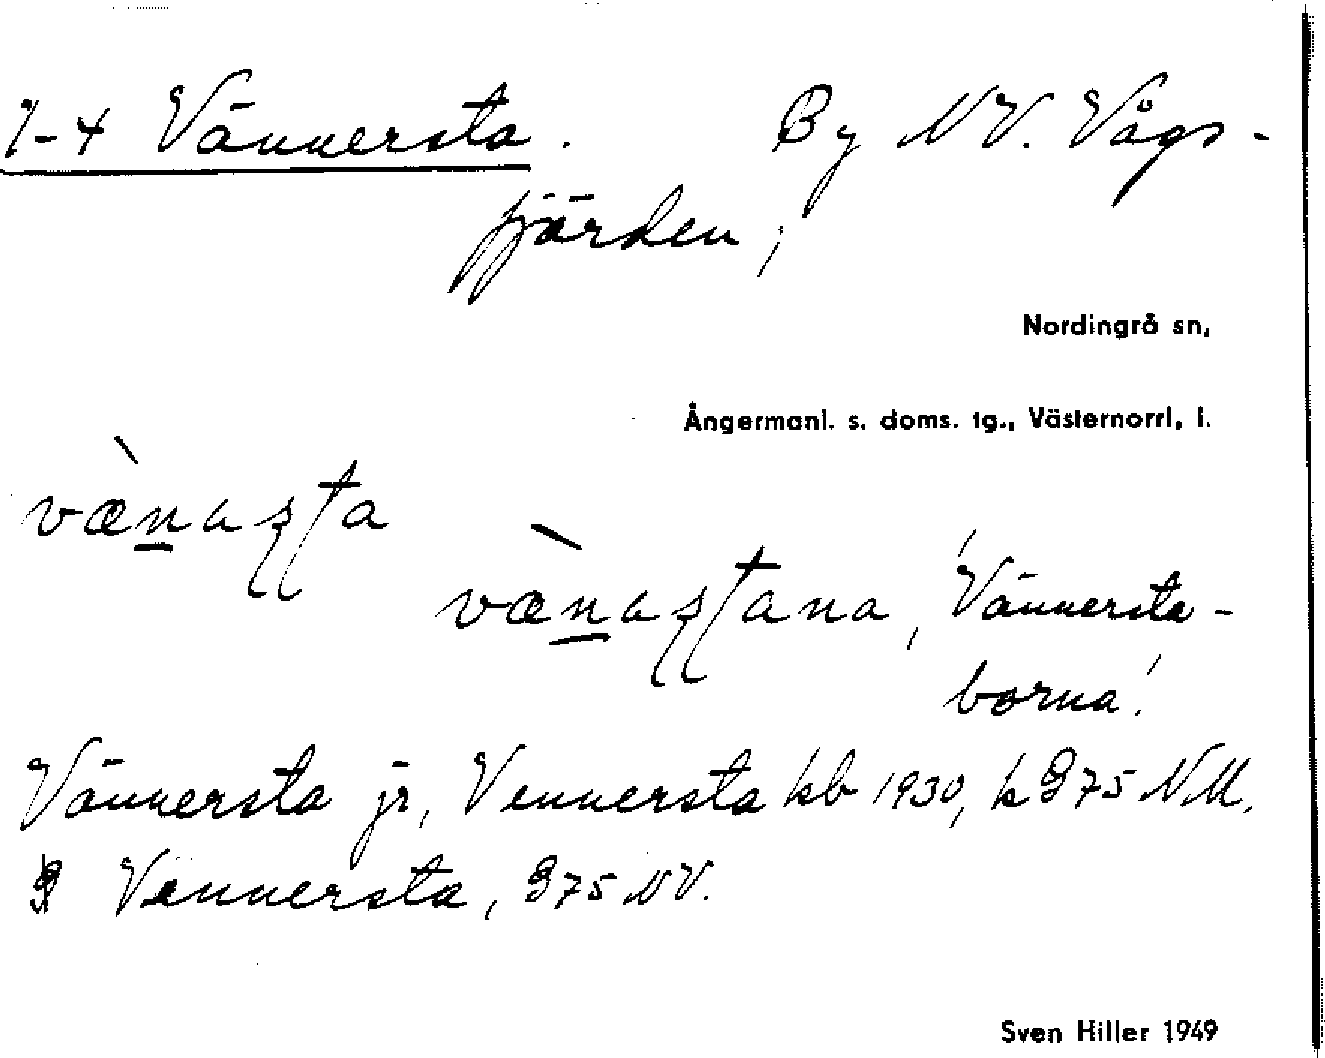 1-4 Vännersta. By NV. Vågs-
fjärden;
Nordingrå sn,
Ångermanl. s. doms. tg., Västernorrl. l.
vænasta
vænastana, 'Vännersta-
borna'.
Vännersta jr, Vennersta kb 1930, k 375 NM.
Vännersta, 375 NV.
Sven Hiller 1949